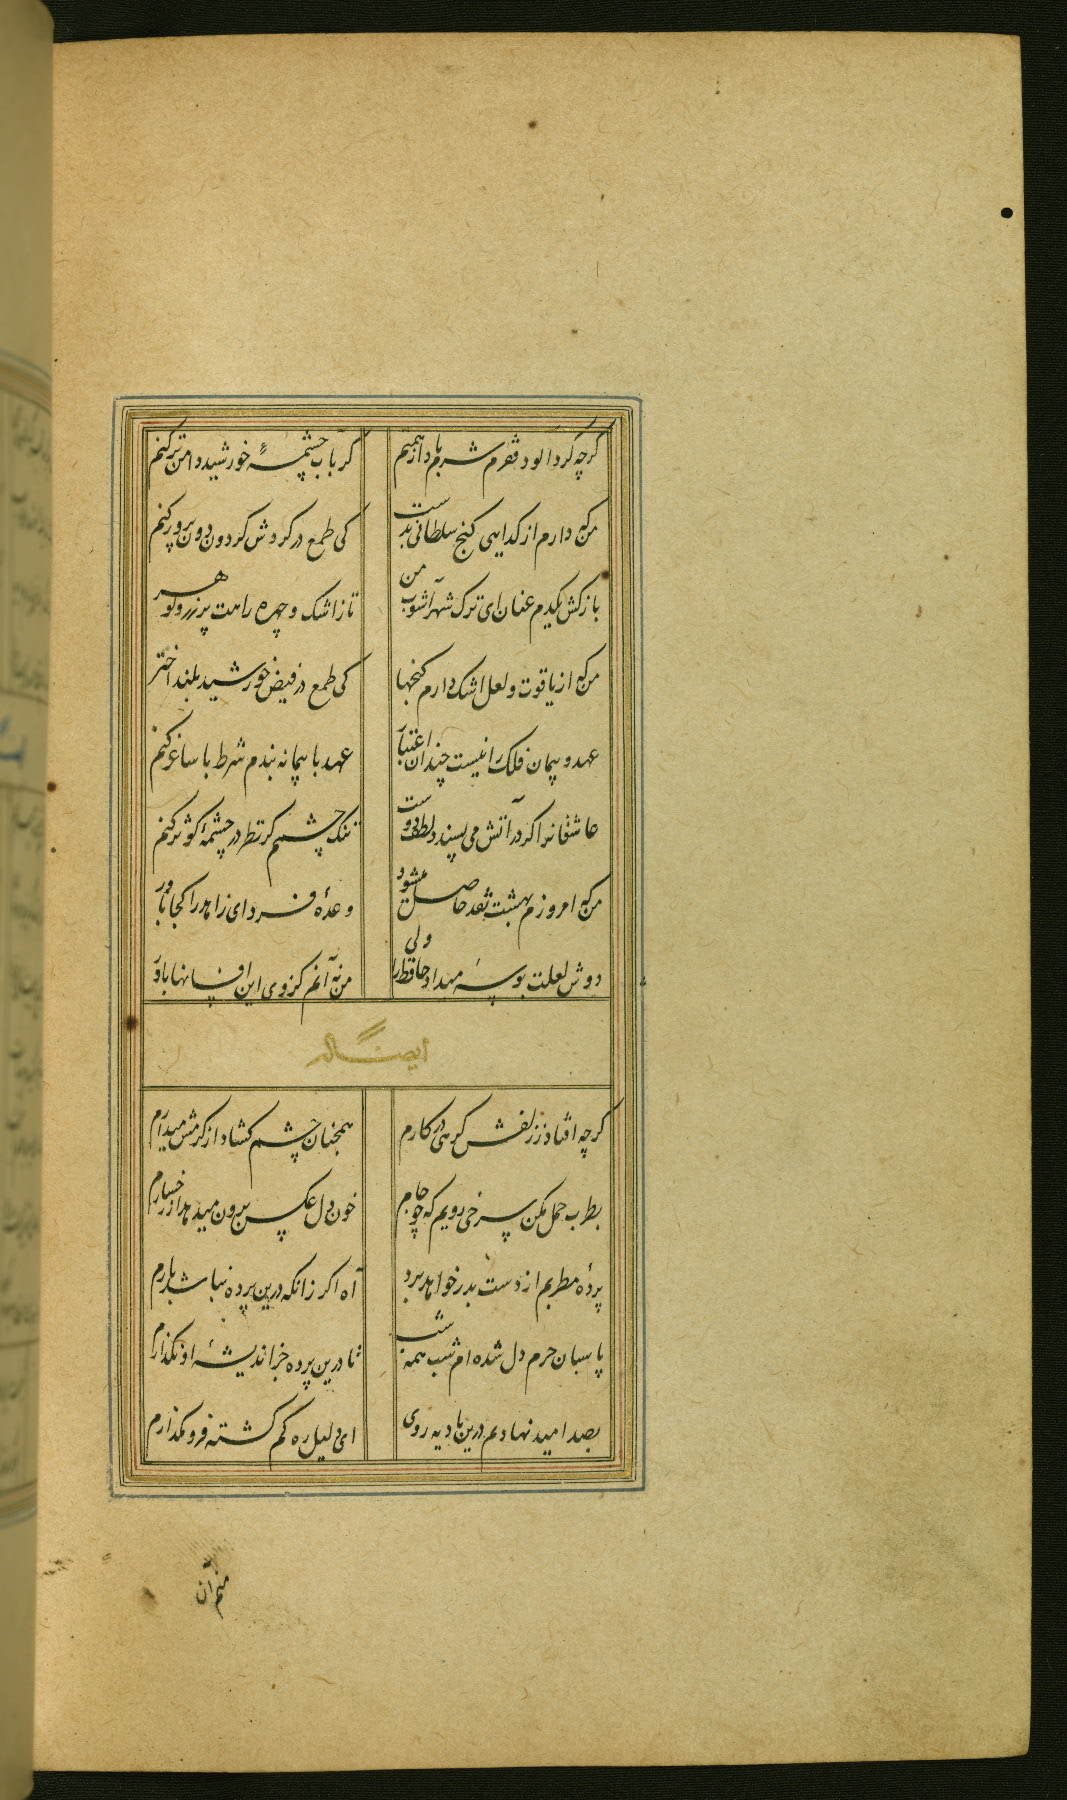 کرچه کرد الود فقرم شرم باد از همتم کر بآب چشمهٔ خورشید دامن تر کنم
من که دارم از کدایی کنج سلطانی بدست کی طمع در کردش کردون دون پرور کنم
باز کش یکدم عنان ای ترک شهرآشوب من تا ز اشک و چهره راهت پر زر و کوهر
من که از یاقوت و لعل اشک دارم کنجها کی طمع در فیض خورشید بلند اختر
عهد و پیمان فلک را نیست چندان اعتبار عهد با پیمانه بندم شرط با ساغر کنم
عاشقانرا کر در آتش می پسندد لطف دوست تنک چشمم کر نظر در چشمهٔ کوثر کنم
من که امروزم بهشت نقد حاصل میشود وعدهٔ فردای زاهد را کجا باور
دوش لعلت بوسهٔ میداد حافظ را ولی من نه آنم کز وی این افسانها باور
ایضا له
کرچه افتاد ز زلفش کرهی در کارم همچنان چشم کشاد از کرمش میدارم
بطرب حمل مکن سرخی رویم که چو جام خون دل عکس برون میدهد از رخسارم
پردهٔ مطربم از دست بدر خواهد برد آه اکر زانکه درین پرده نباشد بارم
پاسبان حرم دل شده ام شب همه شب تا درین پرده جز اندیشهٔ او نکذارم
بصد امید نهادیم درین بادیه روی ای دلیل ره کم کشته فرو مکذارم
منم آن